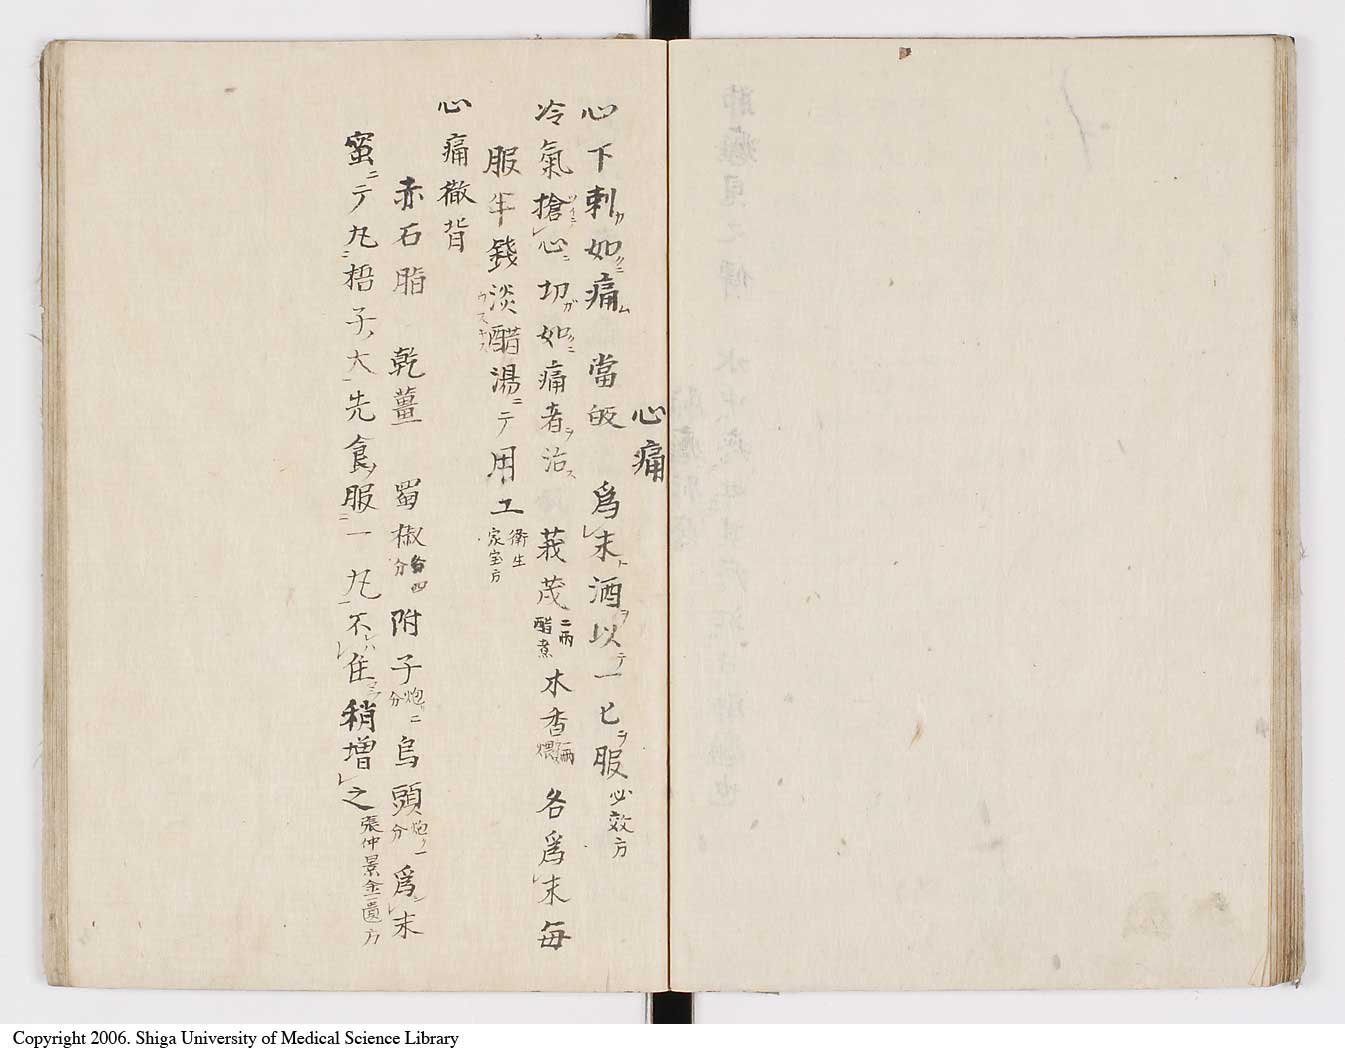 心痛
心下刺ガ如クニ痛ム 當皈 爲末ト酒ヲ以テ一匕ヲ服 必效方
冷氣搶ツイテ心ニ切ガ如クニ痛者ヲ治ス 莪茂 二兩醋煮 木香 一兩煨 各爲末毎
服半錢淡醋湯ニテ用工 衛生家宝方
ウスキス
心痛徹背
赤石脂 乾薑 蜀椒 各四分 附子 炮二分 烏頭 炮一分 爲末
蜜ニテ丸ニ梧子ノ大先食ノ服ニ一丸不ハ住稍増之 張仲景金匱方
Copyright 2006. Shiga University of Medical Science Library